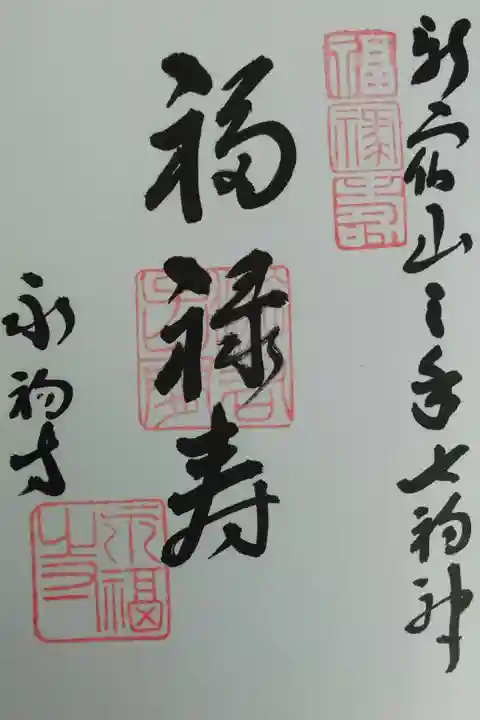 新宿山之手七福神
福禄寿
福禄寿
永福寺
永福寺